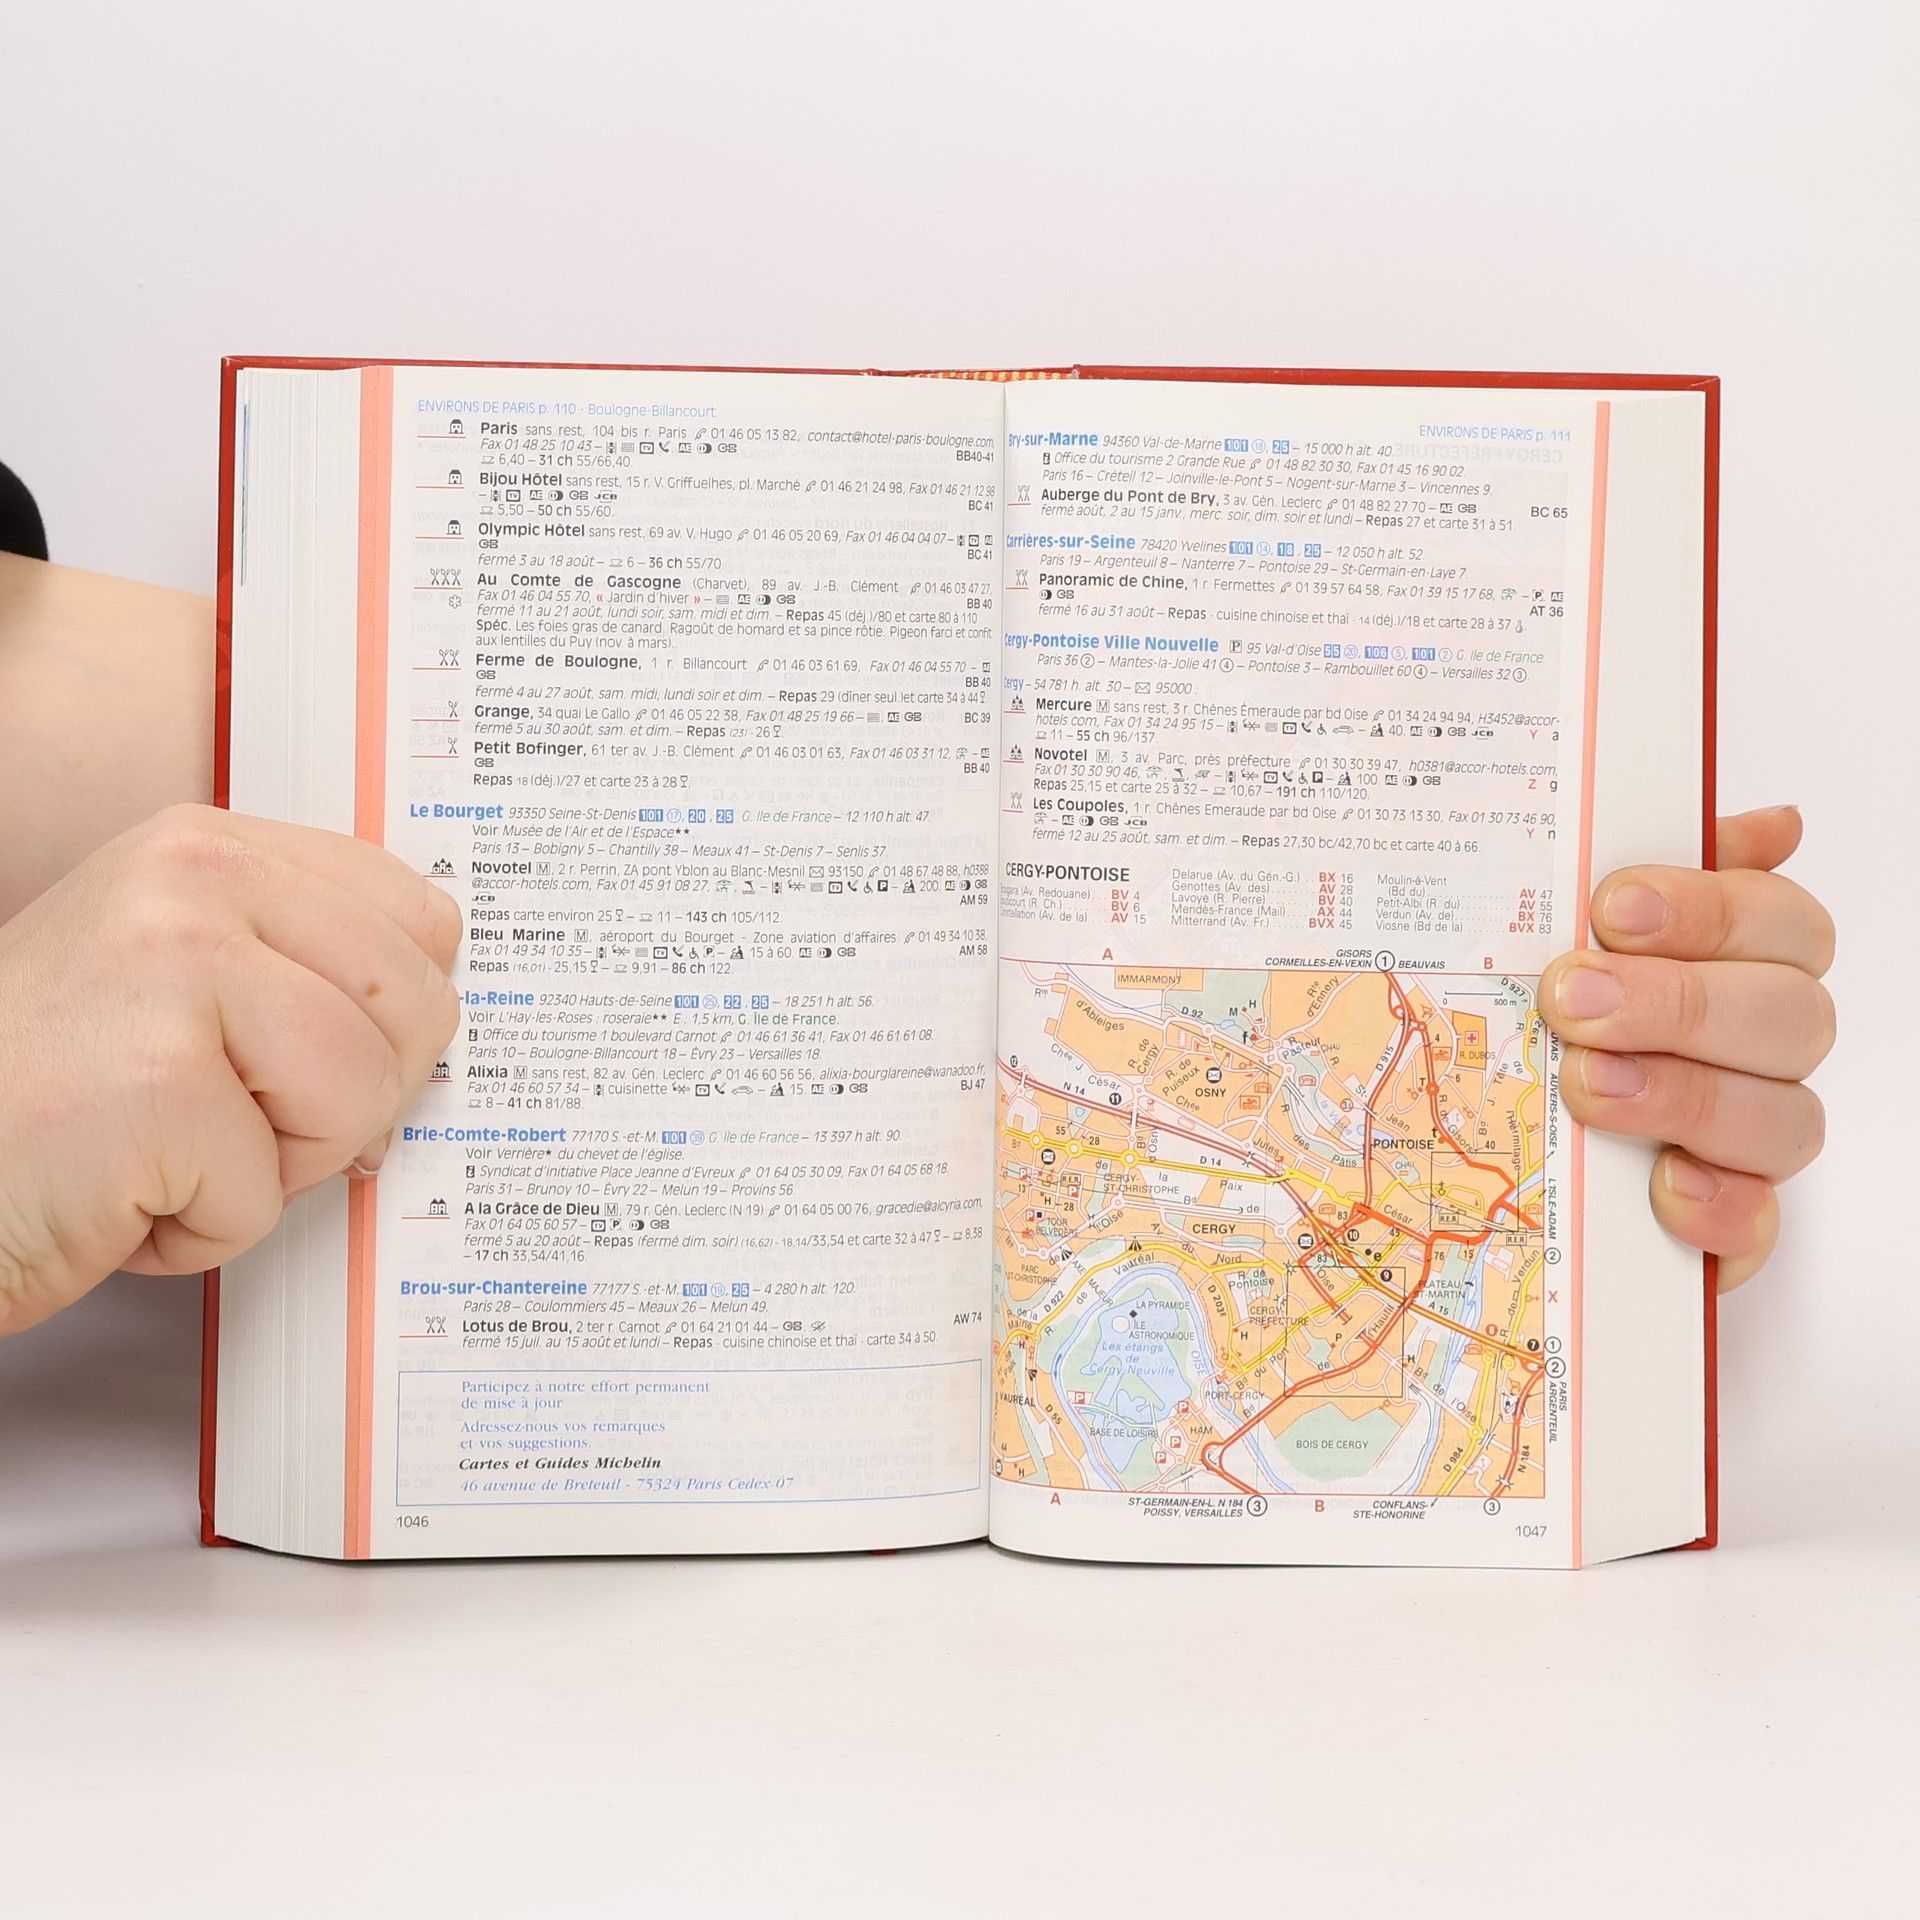 ENVIRONS DE PARIS p. 110 - Boulogne-Billancourt
Paris sans rest, 104 bis r. Paris 01 46 05 13 82, contact@hotel-paris-boulogne.com,
Fax 01 48 25 10 43 – AE GB BB40-41
6,40 – 31 ch 55/66,40.
Bijou Hôtel sans rest, 15 r. V. Griffuelhes, pl. Marché 01 46 21 24 98, Fax 01 46 21 12 98
– TV AE GB JCB BC 41
5,50 – 50 ch 55/60.
Olympic Hôtel sans rest, 69 av. V. Hugo 01 46 05 20 69, Fax 01 46 04 04 07 – TV AE
GB BC 41
fermé 3 au 18 août – 6 – 36 ch 55/70.
Au Comte de Gascogne (Charvet), 89 av. J.-B. Clément 01 46 03 47 27,
Fax 01 46 04 55 70, « Jardin d'hiver » – AE GB BB 40
fermé 11 au 21 août, lundi soir, sam. midi et dim. – Repas 45 (déj.)/80 et carte 80 à 110
Spéc. Les foies gras de canard. Ragoût de homard et sa pince rôtie. Pigeon farci et confit
aux lentilles du Puy (nov. à mars)..
Ferme de Boulogne, 1 r. Billancourt 01 46 03 61 69, Fax 01 46 04 55 70 – AE
GB BB 40
fermé 4 au 27 août, sam. midi, lundi soir et dim. – Repas 29 (dîner seul.)et carte 34 à 44
Grange, 34 quai Le Gallo 01 46 05 22 38, Fax 01 48 25 19 66 – AE GB BC 39
fermé 5 au 30 août, sam. et dim. – Repas (23) - 26
Petit Bofinger, 61 ter av. J.-B. Clément 01 46 03 01 63, Fax 01 46 03 31 12, – AE
GB BB 40
Repas 18 (déj.)/27 et carte 23 à 28
Le Bourget 93350 Seine-St-Denis 101 17, 20, 25 G. Ile de France – 12 110 h alt. 47.
Voir Musée de l'Air et de l'Espace★★.
Paris 13 – Bobigny 5 – Chantilly 38 – Meaux 41 – St-Denis 7 – Senlis 37.
Novotel M, 2 r. Perrin, ZA pont Yblon au Blanc-Mesnil 93150 01 48 67 48 88, h0388
@accor-hotels.com, Fax 01 45 91 08 27, – TV P – 200. AE GB
JCB AM 59
Repas carte environ 25 – 11 – 143 ch 105/112.
Bleu Marine M, aéroport du Bourget - Zone aviation d'affaires 01 49 34 10 38,
Fax 01 49 34 10 35 – TV P – 15 à 60. AE GB AM 58
Repas (16,01) - 25,15 – 9,91 – 86 ch 122.
-la-Reine 92340 Hauts-de-Seine 101 25, 22, 25 – 18 251 h alt. 56.
Voir L'Hay-les-Roses : roseraie★★ E : 1,5 km, G. Île de France.
Office du tourisme 1 boulevard Carnot 01 46 61 36 41, Fax 01 46 61 61 08.
Paris 10 – Boulogne-Billancourt 18 – Évry 23 – Versailles 18.
Alixia M sans rest, 82 av. Gén. Leclerc 01 46 60 56 56, alixia-bourglareine@wanadoo.fr,
Fax 01 46 60 57 34 – cuisinette TV – 15. AE GB BJ 47
8 – 41 ch 81/88.
Brie-Comte-Robert 77170 S.-et-M. 101 39 G. Ile de France – 13 397 h alt. 90.
Voir Verrière★ du chevet de l'église.
Syndicat d'initiative Place Jeanne d'Evreux 01 64 05 30 09, Fax 01 64 05 68 18.
Paris 31 – Brunoy 10 – Évry 22 – Melun 19 – Provins 56.
A la Grâce de Dieu M, 79 r. Gén. Leclerc (N 19) 01 64 05 00 76, gracedie@alcyria.com,
Fax 01 64 05 60 57 – TV P. GB
fermé 5 au 20 août – Repas (fermé dim. soir) (16,62) - 18,14/33,54 et carte 32 à 47 – 8,38
– 17 ch 33,54/41,16.
Brou-sur-Chantereine 77177 S.-et-M. 101 19, 25 – 4 280 h alt. 120.
Paris 28 – Coulommiers 45 – Meaux 26 – Melun 49.
Lotus de Brou, 2 ter r. Carnot 01 64 21 01 44 – GB. AW 74
fermé 15 juil. au 15 août et lundi – Repas - cuisine chinoise et thaï - carte 34 à 50.
Participez à notre effort permanent
de mise à jour
Adressez-nous vos remarques
et vos suggestions.
Cartes et Guides Michelin
46 avenue de Breteuil - 75324 Paris Cedex 07
1046
ENVIRONS DE PARIS p. 111
Bry-sur-Marne 94360 Val-de-Marne 101 18, 25 – 15 000 h alt. 40.
Office du tourisme 2 Grande Rue 01 48 82 30 30, Fax 01 45 16 90 02.
Paris 16 – Créteil 12 – Joinville-le-Pont 5 – Nogent-sur-Marne 3 – Vincennes 9.
Auberge du Pont de Bry, 3 av. Gén. Leclerc 01 48 82 27 70 – AE GB BC 65
fermé août, 2 au 15 janv., merc. soir, dim. soir et lundi – Repas 27 et carte 31 à 51.
Carrières-sur-Seine 78420 Yvelines 101 14, 18, 25 – 12 050 h alt. 52.
Paris 19 – Argenteuil 8 – Nanterre 7 – Pontoise 29 – St-Germain-en-Laye 7.
Panoramic de Chine, 1 r. Fermettes 01 39 57 64 58, Fax 01 39 15 17 68, – P. AE
GB AT 36
fermé 16 au 31 août – Repas - cuisine chinoise et thaï - 14 (déj.)/18 et carte 28 à 37
Cergy-Pontoise Ville Nouvelle P 95 Val-d'Oise 55 20, 106 5, 101 2 G. Ile de France.
Paris 36 2 – Mantes-la-Jolie 41 4 – Pontoise 3 – Rambouillet 60 4 – Versailles 32 3.
Cergy – 54 781 h. alt. 30 – 95000 :
Mercure M sans rest, 3 r. Chênes Émeraude par bd Oise 01 34 24 94 94, H3452@accor-
hotels.com, Fax 01 34 24 95 15 – TV – 40. AE GB JCB Y a
11 – 55 ch 96/137.
Novotel M, 3 av. Parc, près préfecture 01 30 30 39 47, h0381@accor-hotels.com,
Fax 01 30 30 90 46, – TV P – 100. AE GB Z g
Repas 25,15 et carte 25 à 32 – 10,67 – 191 ch 110/120.
Les Coupoles, 1 r. Chênes Emeraude par bd Oise 01 30 73 13 30, Fax 01 30 73 46 90,
– AE GB JCB Y n
fermé 12 au 25 août, sam. et dim. – Repas 27,30 bc/42,70 bc et carte 40 à 66.
CERGY-PONTOISE
(Av. Redouane) BV 4
(R. Ch.) BV 6
(Av. de la) AV 15
Delarue (Av. du Gén.-G.) BX 16
Genottes (Av. des) AV 28
Lavoye (R. Pierre) BV 40
Mendès-France (Mail) AX 44
Mitterrand (Av. Fr.) BVX 45
Moulin-à-Vent
(Bd du) AV 47
Petit-Albi (R. du) AV 55
Verdun (Av. de) BX 76
Viosne (Bd de la) BVX 83
A
GISORS
CORMEILLES-EN-VEXIN 1 BEAUVAIS
B
IMMARMONT
Rte d'Ennery
D 927
0 500 m
d'Ableiges
D 92
M H
f
Pasteur
CHAU
D 915
R. DUBOS
Chée J. César
N 14
R. de Cergy
R. de Puiseux
OSNY
la Viosne
St-Jean
R. de Gisors
l'Hermitage
AUVERS-S-OISE
PONTOISE
Jules
des Pâtis
D 14
CERGY-
ST-CHRISTOPHE
la Paix
R.E.R.
TOUR
BELVEDÈRE
CERGY
César
L'ISLE-ADAM
2
Vauréal
du Nord
R. de
Pontoise
PARC
ST-CHRISTOPHE
AXE MAJEUR
D 922
LA PYRAMIDE
ÎLE
ASTRONOMIQUE
Les étangs
de
Cergy Neuville
OISE
D 203E
CERGY-
PRÉFECTURE
l'Hautil
PLATEAU
ST-MARTIN
A 15
Verdun
X
PORT-CERGY
Bd du Port
Bd de l'Oise
1
2
PARIS
ARGENTEUIL
VAURÉAL
D 55
BASE DE LOISIRS
HAM
BOIS DE CERGY
D 984
N 184
A
ST-GERMAIN-EN-L. N 184
POISSY, VERSAILLES 3
B
CONFLANS-
STE-HONORINE
3
1047